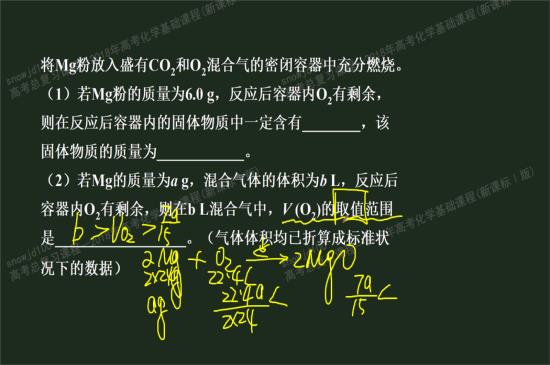 将Mg粉放入盛有CO2和O2混合气的密闭容器中充分燃烧。
（1）若Mg粉的质量为6.0 g，反应后容器内O2有剩余，
则在反应后容器内的固体物质中一定含有________，该
固体物质的质量为____________。
（2）若Mg的质量为a g，混合气体的体积为b L，反应后
容器内O2有剩余，则在b L混合气中，V (O2)的取值范围
是__________________。（气体体积均已折算成标准状
b > VO2 > 7a/15
况下的数据）
2Mg + O2 → 2MgO
2×24g 22.4L
ag 22.4a/2×24 L
7a/15 L